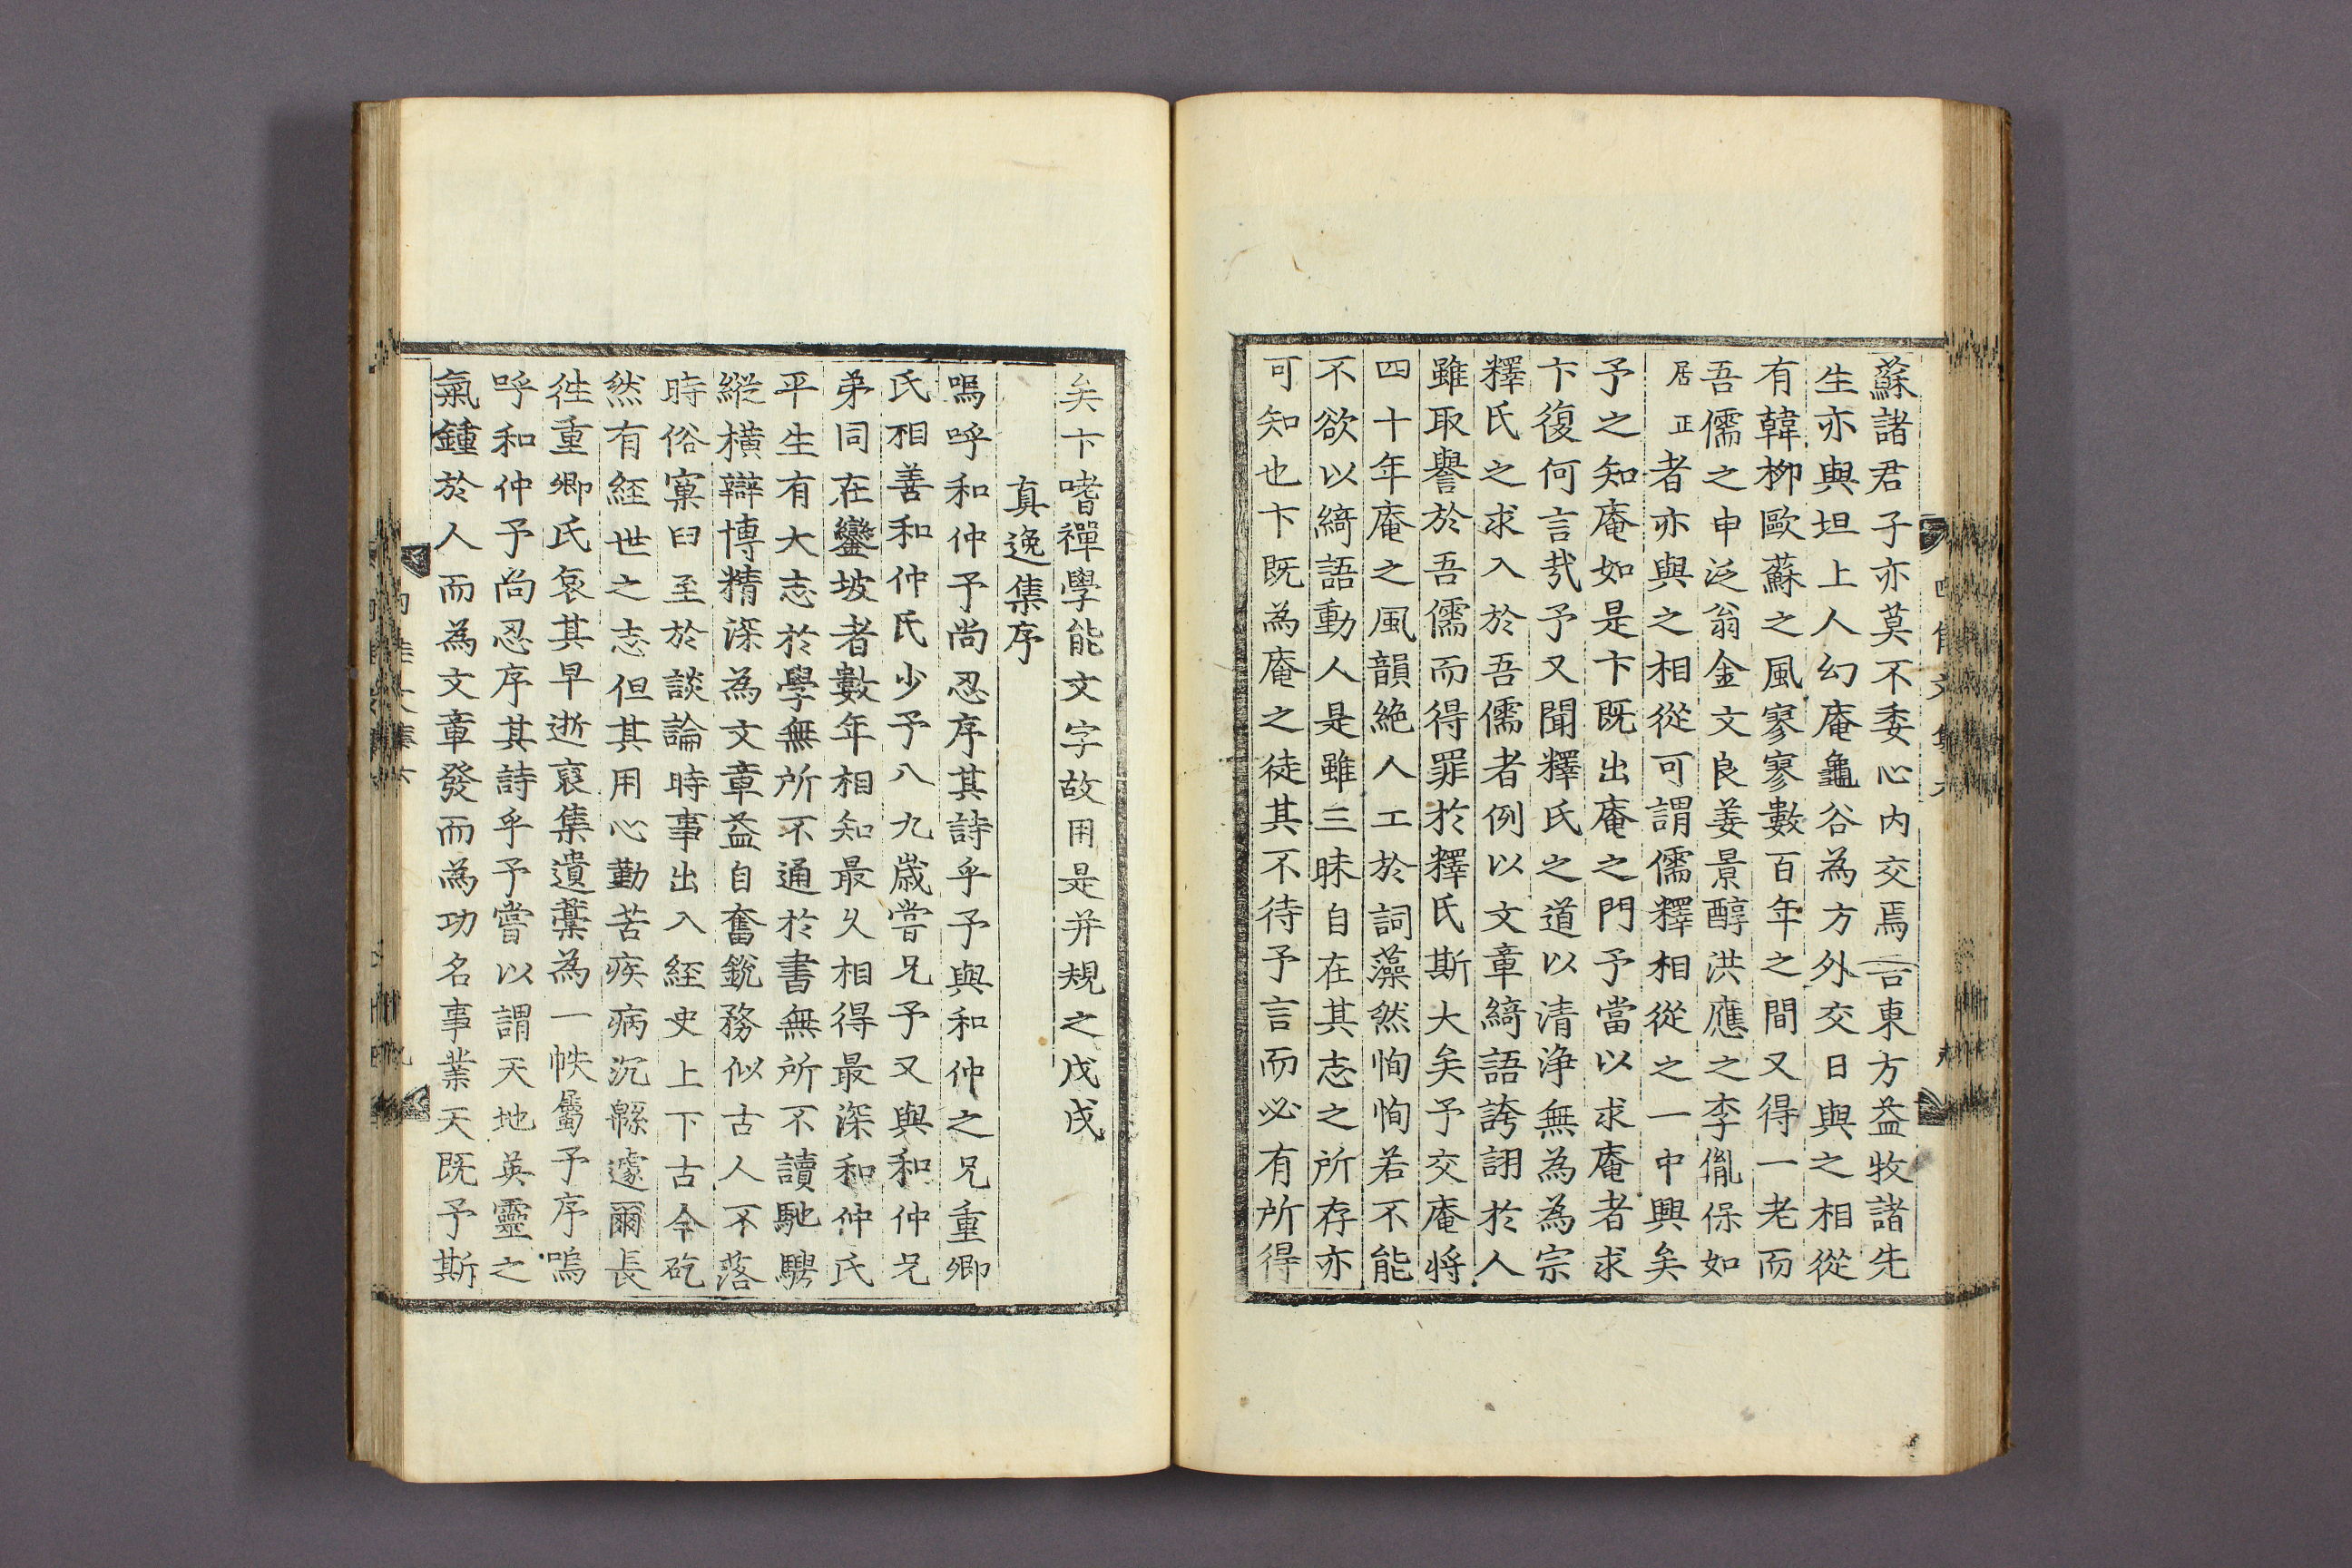 蘇諸君子亦莫不委心内交焉吾東方益牧諸先
生亦與坦上人幻庵龜谷為方外交日與之相從
有韓柳歐蘇之風寥寥數百年之間又得一老而
吾儒之申泛翁金文良姜景醇洪應之李胤保如
居正者亦與之相從可謂儒釋相從之一中興矣
予之知庵如是卞既出庵之門予當以求庵者求
卞復何言㢤予又聞釋氏之道以清淨無為為宗
釋氏之求入於吾儒者例以文章綺語誇詡於人
雖取譽於吾儒而得罪於釋氏斯大矣予交庵將
四十年庵之風韻絶人工於詞藻然恂恂若不能
不欲以綺語動人是雖三昧自在其志之所存亦
可知也卞既為庵之徒其不待予言而必有所得
矣卞嗜禪學能文字故用是并規之戊戌
真逸集序
嗚呼和仲予尚忍序其詩乎予與和仲之兄重卿
氏相善和仲氏少予八九歲嘗兄予又與和仲兄
弟同在鑾坡者數年相知最久相得最深和仲氏
平生有大志於學無所不通於書無所不讀馳騁
縱橫辯博精深為文章益自奮銳務似古人不落
時俗窠臼至於談論時事出入經史上下古今矻
然有經世之志但其用心勤苦疾病沉緜遽爾長
徃重卿氏哀其早逝裒集遺藁為一帙屬予序嗚
呼和仲予尚忍序其詩乎予嘗以謂天地英靈之
氣鍾於人而為文章發而為功名事業天既予斯